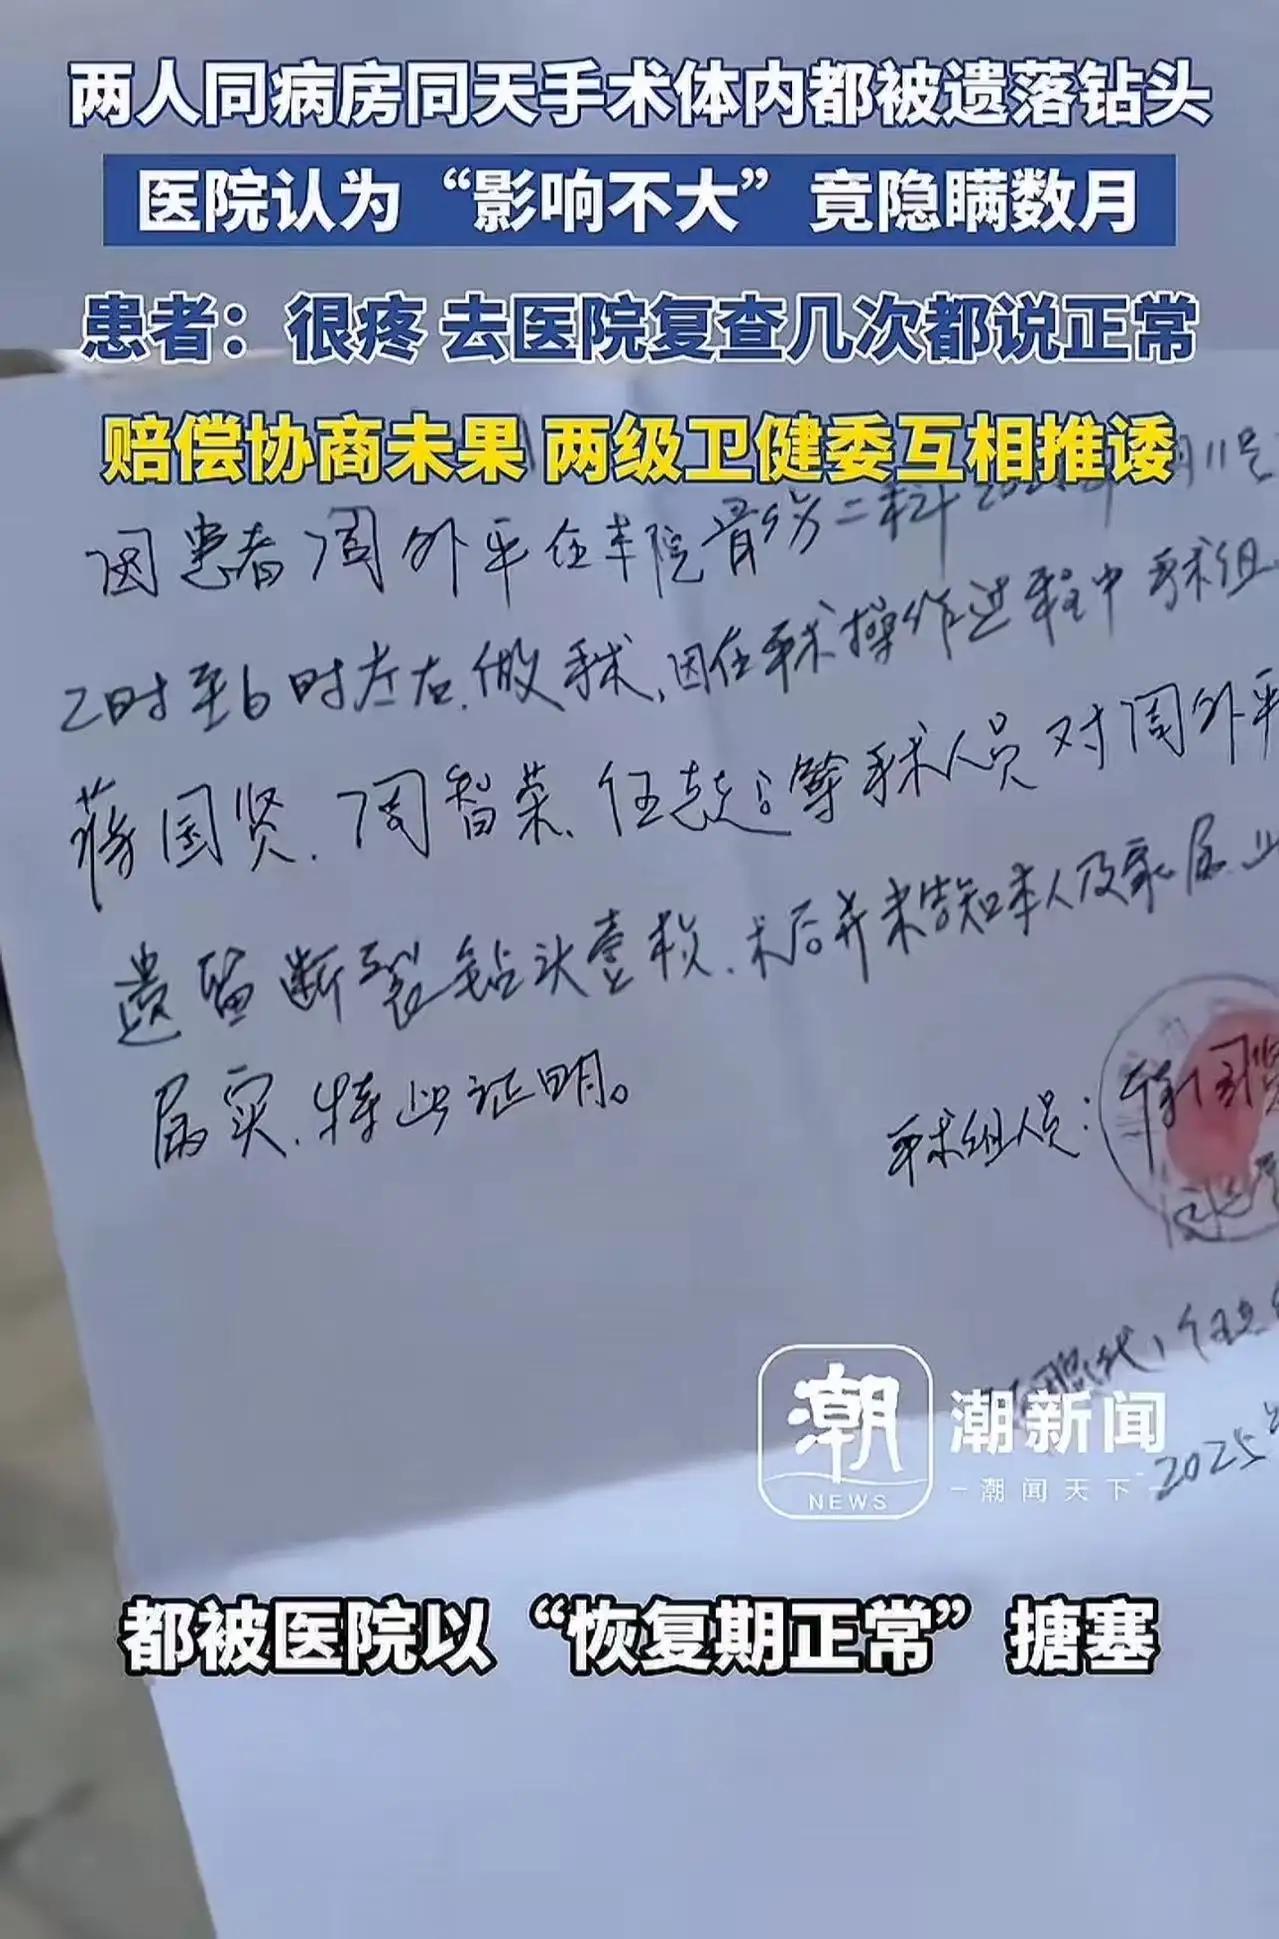 两人同病房同天手术体内都被遗落钻头
医院认为“影响不大”竟隐瞒数月
患者：很疼 去医院复查几次都说正常
赔偿协商未果 两级卫健委互相推诿
因患者周外平在本院骨伤二科202 年 月11号
2时至6时左右.做手术,因在手术操作过程中手术组
蒋国贤.周智荣.任 等手术人员对周外平
遗留断裂钻头壹枚.术后并未告知本人及家属
属实.特此证明。
手术组人员：蒋国贤
潮
NEWS
潮新闻
潮闻天下
2025年
都被医院以“恢复期正常”搪塞